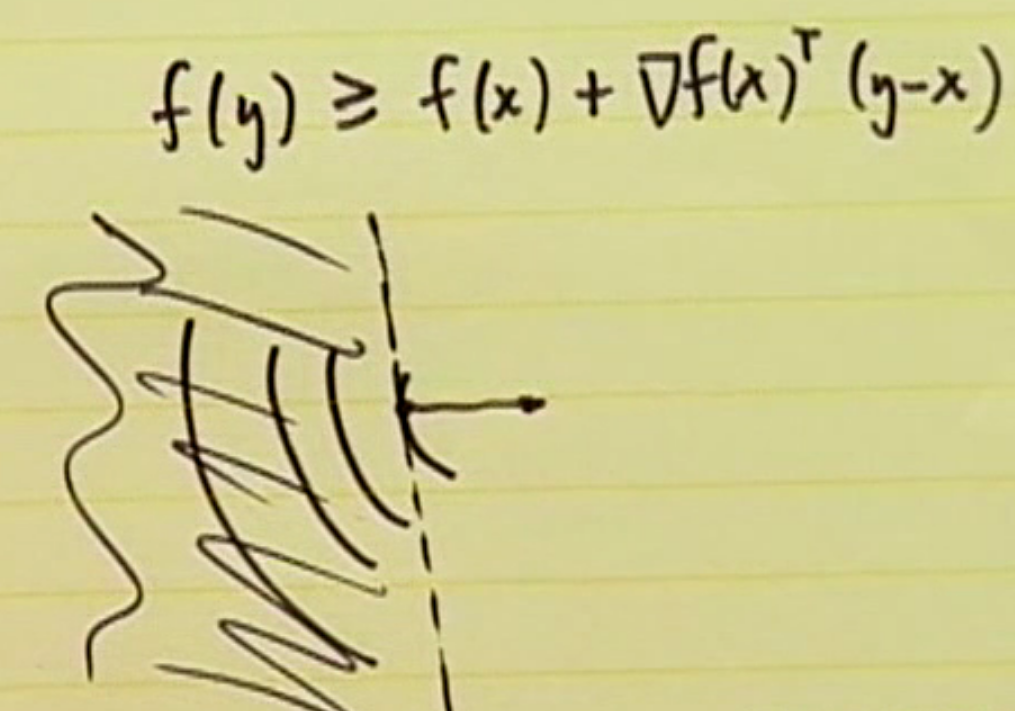 f(y) ≥ f(x) + ∇f(x)ᵀ (y-x)